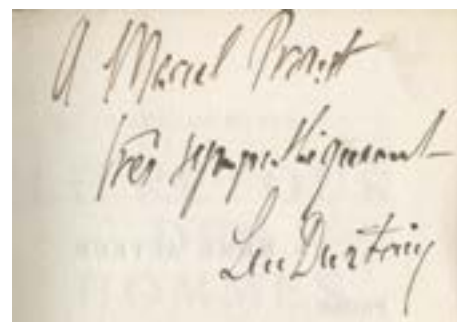 A Marcel Proust
très sympathiquement
Luc Durtain